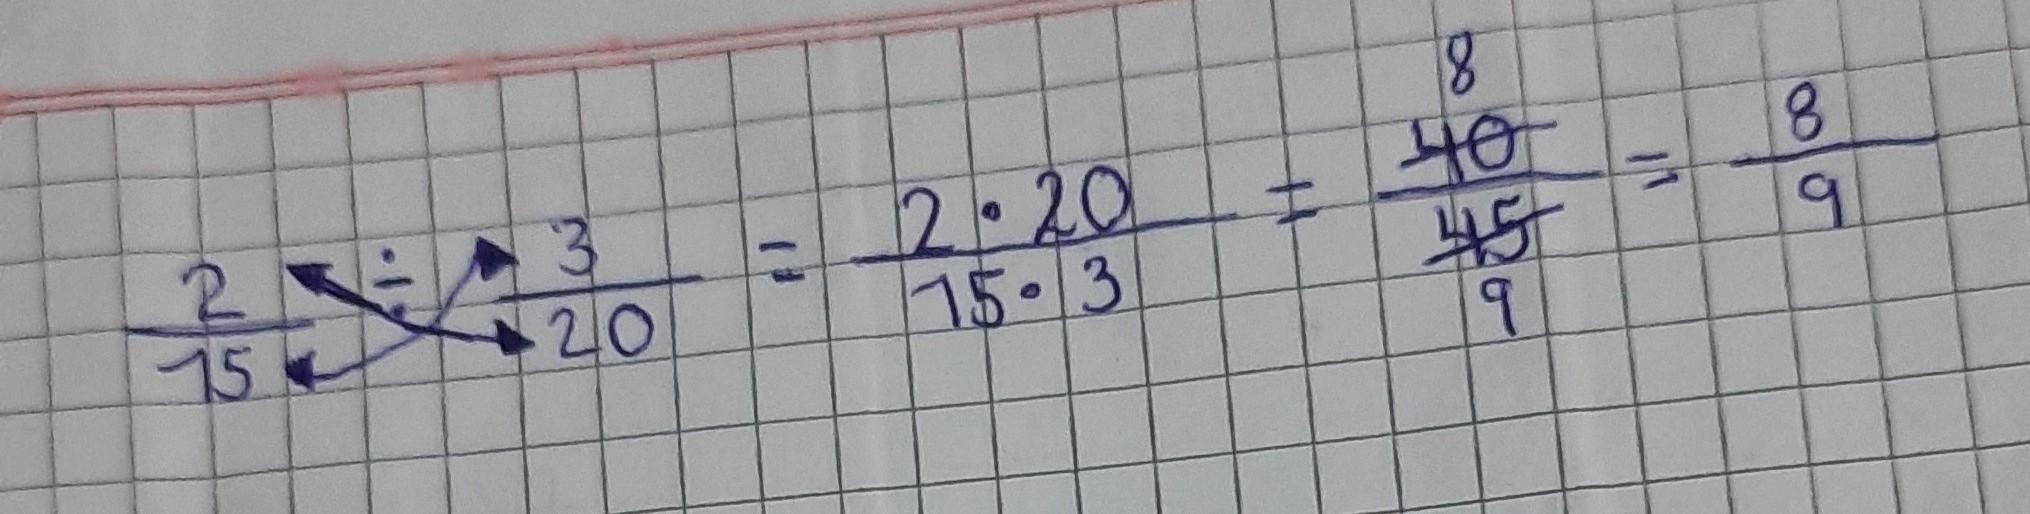 2/15 ÷ 3/20 = 2·20/15·3 = 8 40/45 9 = 8/9